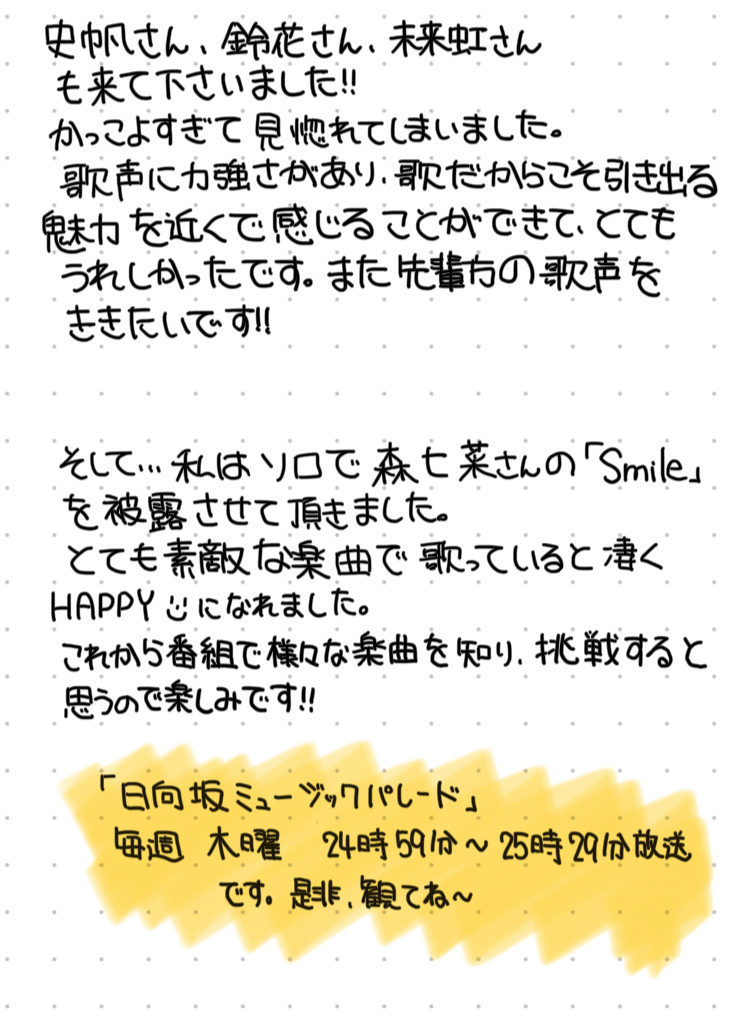 史帆さん、鈴花さん、未来虹さん
も来て下さいました!!
かっこよすぎて見惚れてしまいました。
歌声に力強さがあり、歌だからこそ引き出る
魅力を近くで感じることができて、とても
うれしかったです。また先輩方の歌声を
ききたいです!!
そして…私はソロで森七菜さんの「Smile」
を披露させて頂きました。
とても素敵な楽曲で歌っていると凄く
HAPPY☺になれました。
これから番組で様々な楽曲を知り、挑戦すると
思うので楽しみです!!
「日向坂ミュージックパレード」
毎週 木曜 24時59分〜25時29分放送
です。是非、観てね〜